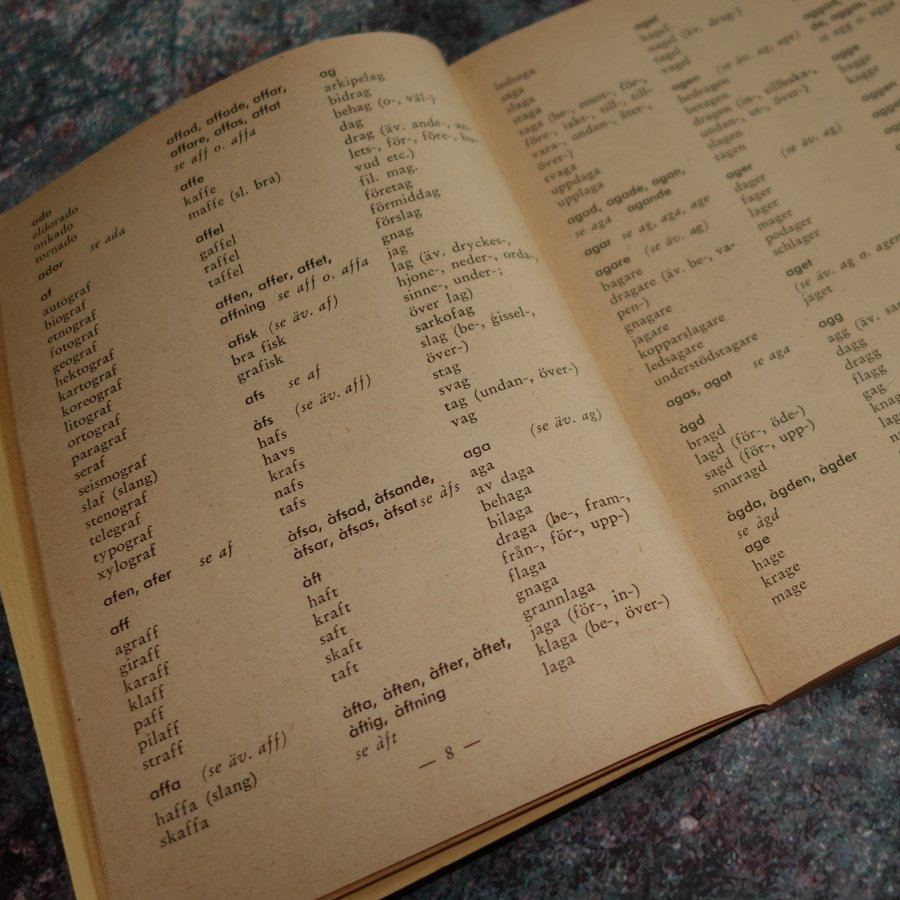 ado
eldorado
mikado
tornado
ador se ada
af
autograf
biograf
etnograf
fotograf
geograf
hektograf
kartograf
koreograf
litograf
ortograf
paragraf
seraf
seismograf
slaf (slang)
stenograf
telegraf
typograf
xylograf
afen, afer se af
aff
agraff
giraff
karaff
klaff
paff
pilaff
straff
affa (se äv. aff)
haffa (slang)
skaffa
affad, affade, affar,
affare, affas, affat
se aff o. affa
affe
kaffe
maffe (sl. bra)
affel
gaffel
raffel
taffel
affen, affer, affet,
affning se aff o. affa
afisk (se äv. af)
bra fisk
grafisk
afs se af
àfs (se äv. aff)
hafs
havs
krafs
nafs
tafs
àfsa, àfsad, àfsande,
àfsar, àfsas, àfsat se àfs
àft
haft
kraft
saft
skaft
taft
àfta, àften, àfter, àftet,
àftig, àftning
se àft
ag
arkipelag
bidrag
behag (o-, väl-)
dag
drag (äv. ande-, an-
lets-, för-, före-, hu-
vud etc.)
fil. mag.
företag
förmiddag
förslag
gnag
jag
lag (äv. dryckes-,
hjone-, neder-, orda-,
sinne-, under-;
över lag)
sarkofag
slag (be-, gissel-,
över-)
stag
svag
tag (undan-, över-)
vag
aga (se äv. ag)
aga
av daga
behaga
bilaga
draga (be-, fram-,
från-, för-, upp-)
flaga
gnaga
grannlaga
jaga (för-, in-)
klaga (be-, över-)
laga
— 8 —
ledsaga
saga
slaga
staga
taga (be-, emot-, för-,
före-, iakt-, till-, till-
vara-, undan-, åter-,
över-)
tvaga
uppdaga
upplaga
agad, agade, agan,
se aga agande
agar se ag, aga, age
agare (se äv. ag)
bagare
dragare (äv. be-, va-
pen-)
gnagare
jagare
kopparslagare
ledsagare
understödstagare
agas, agat se aga
àgd
bragd
lagd (för-, öde-)
sagd (för-, upp-)
smaragd
àgda, àgden, àgder
se àgd
age
hage
krage
mage
agel
hagel
nagel (äv. drag-)
tagel
vagel
agen (se äv. ag, age)
bedragen
betagen
dragen (in-, tillbaka-,
undan-, ut-, över-)
slagen
tagen
ager (se äv. ag)
dager
fager
lager
mager
podager
schlager
aget
(se äv. ag o. agen
jaget
agg
agg (äv. sa
dagg
dragg
flagg
gag
knag
lag
se agg o. agga
agge
bagge
kagge
aggen